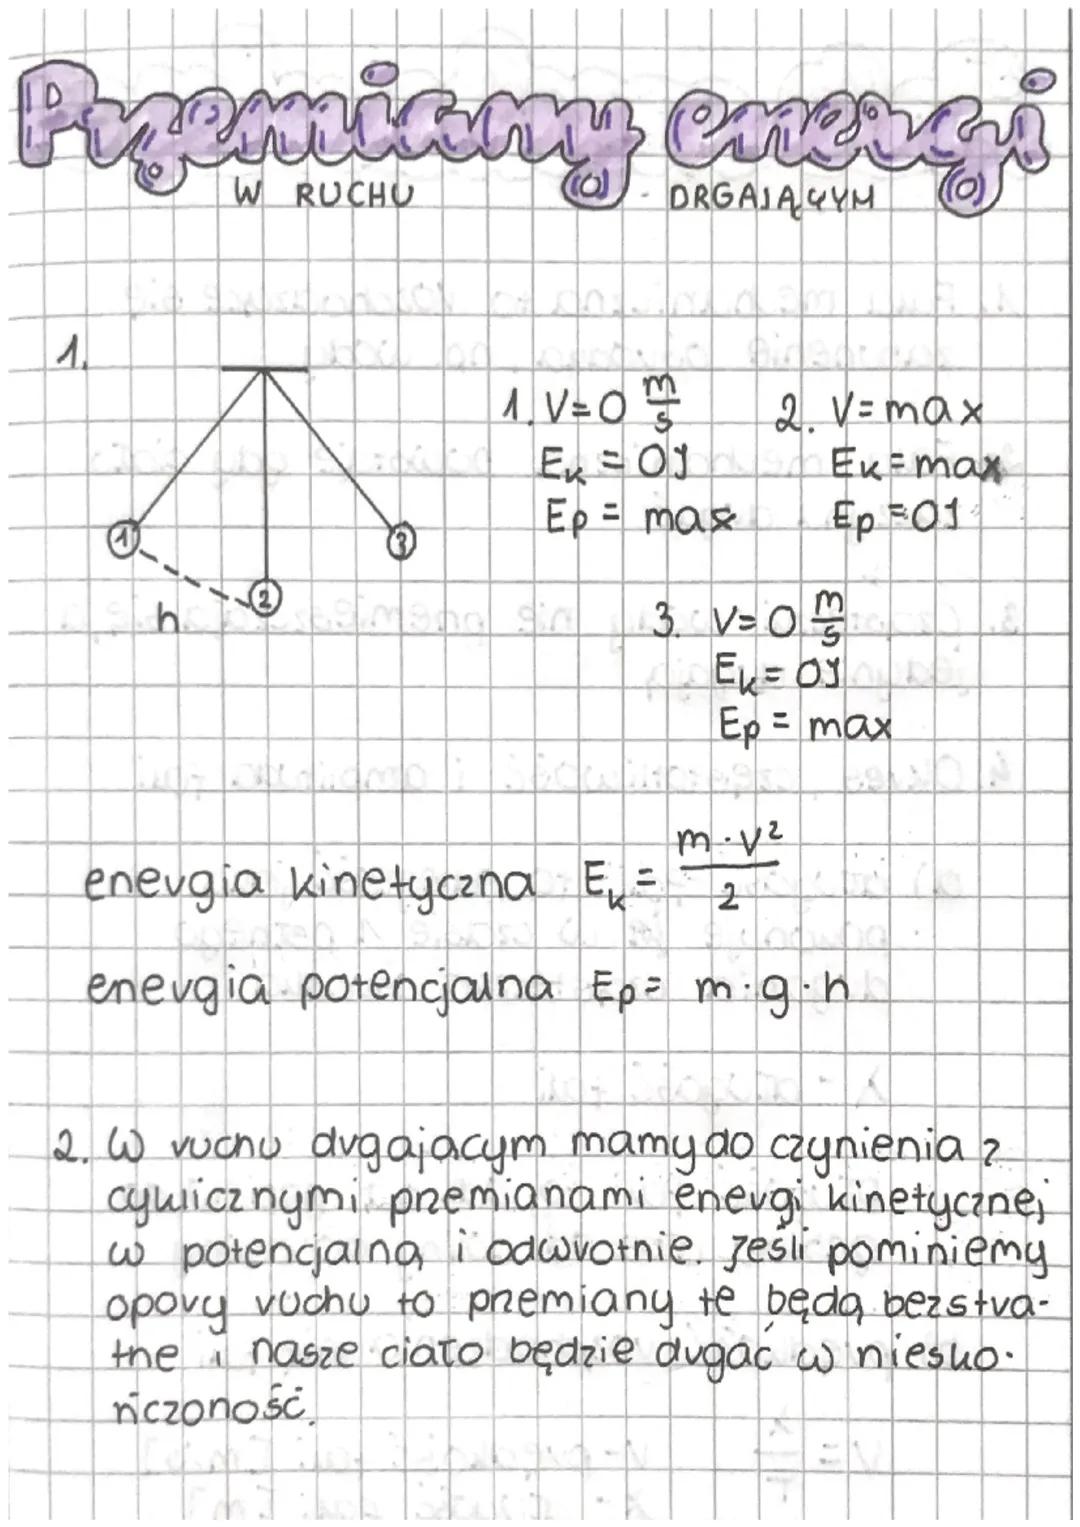 Przemiany energi
W RUCHU DRGAJĄCYM
1.
1. V=0 m/s 2. V=max
Ek = 0J Ek=max
Ep = max Ep=0J
1 3
2
h
3. V=0 m/s
Ek= 0J
Ep = max
energia kinetyczna Ek = m·v²/2
energia potencjalna Ep= m·g·h
2. W ruchu drgającym mamy do czynienia z
cyklicznymi przemianami energi kinetycznej
w potencjalną i odwrotnie. Jeśli pominiemy
opory ruchu to przemiany te będą bezstra-
tne i nasze ciało będzie drgać w niesko-
ńczoność.